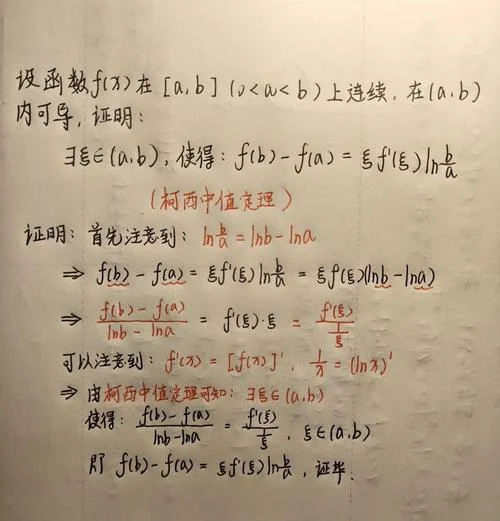 设函数f(x)在[a,b](0<a<b)上连续,在(a,b)
内可导,证明:
∃ξ∈(a,b),使得:f(b)-f(a)=ξf'(ξ)ln b/a
(柯西中值定理)
证明:首先注意到:ln b/a=lnb-lna
⇒ f(b)-f(a)=ξf'(ξ)ln b/a=ξf(ξ)(lnb-lna)
⇒ (f(b)-f(a))/(lnb-lna)=f'(ξ)·ξ=f'(ξ)/(1/ξ)
可以注意到:f'(x)=[f(x)]',1/x=(lnx)'
⇒ 由柯西中值定理可知:∃ξ∈(a,b)
使得:(f(b)-f(a))/(lnb-lna)=f'(ξ)/(1/ξ),ξ∈(a,b)
即 f(b)-f(a)=ξf'(ξ)ln b/a,证毕.